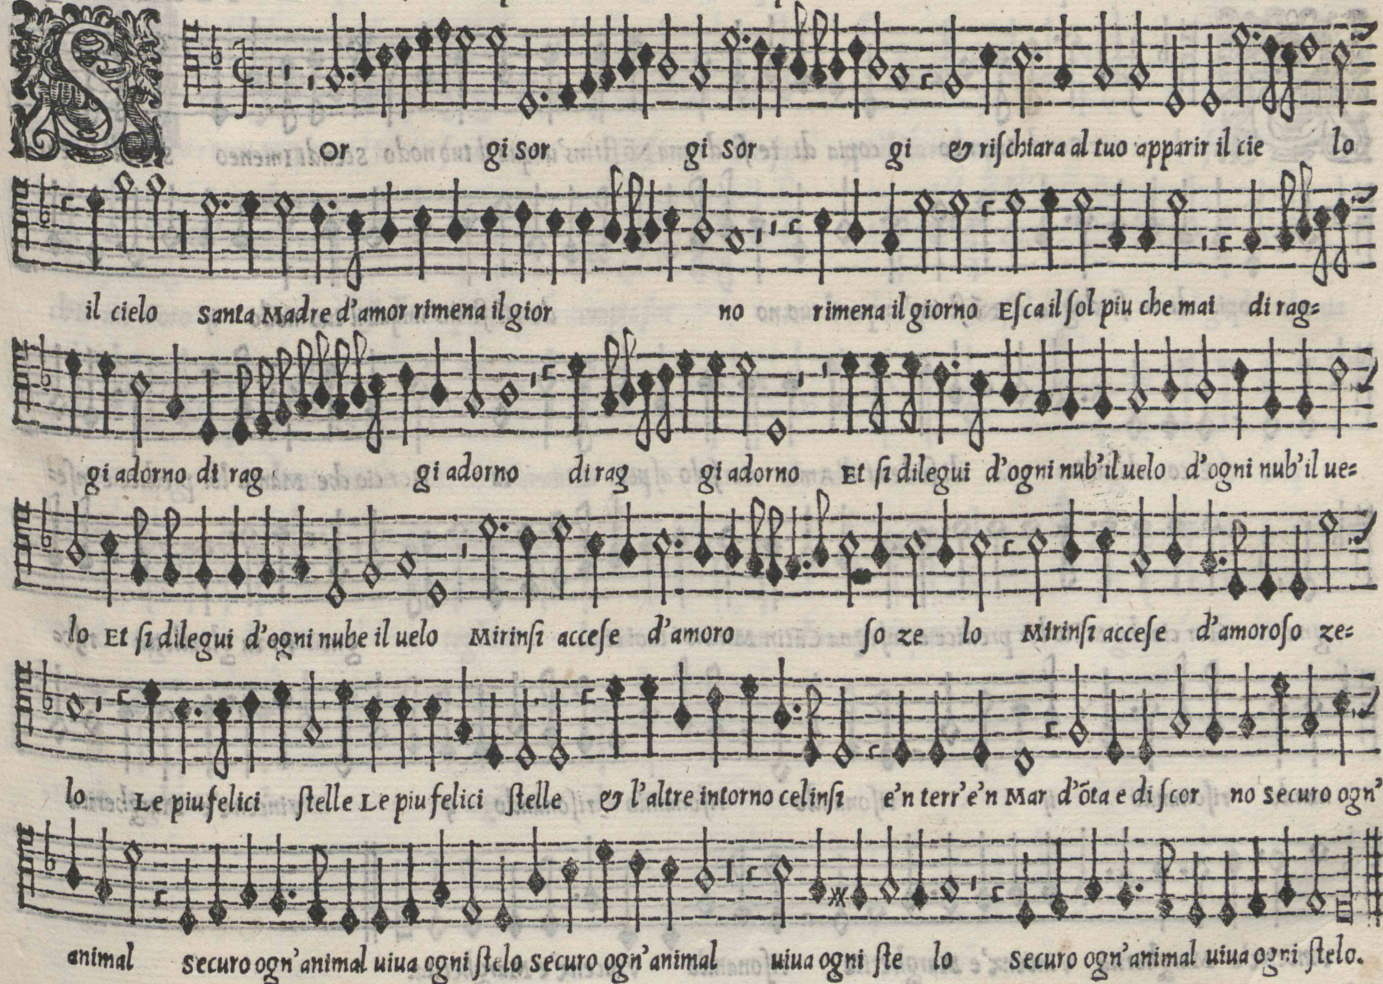 S or gi sor gi sor gi & riſchiara al tuo apparir il cie lo
il cielo Santa Madre d'amor rimena il gior no rimena il giorno Eſca il ſol piu che mai di rag=
gi adorno di rag gi adorno di rag gi adorno Et ſi dilegui d'ogni nub'il uelo d'ogni nub'il ue=
lo Et ſi dilegui d'ogni nube il uelo Mirinſi acceſe d'amoro ſo ze lo Mirinſi acceſe d'amoroſo ze=
lo Le piu felici ſtelle Le piu felici ſtelle & l'altre intorno celinſi e'n terr'e'n Mar d'õta e di ſcor no Securo ogn'
animal Securo ogn'animal uiua ogni ſtelo Securo ogn'animal uiua ogni ſte lo Securo ogn'animal uiua ogni ſtelo.